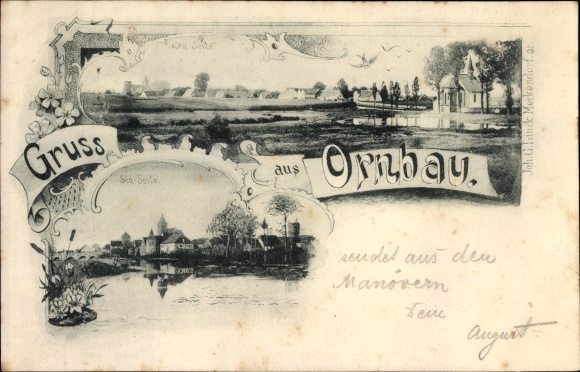 Nord-Seite.
Gruss aus Ornbau.
Süd-Seite.
sendet aus den
Manövern
Dein
August
Joh. G. Linck, Merkendorf. 97.